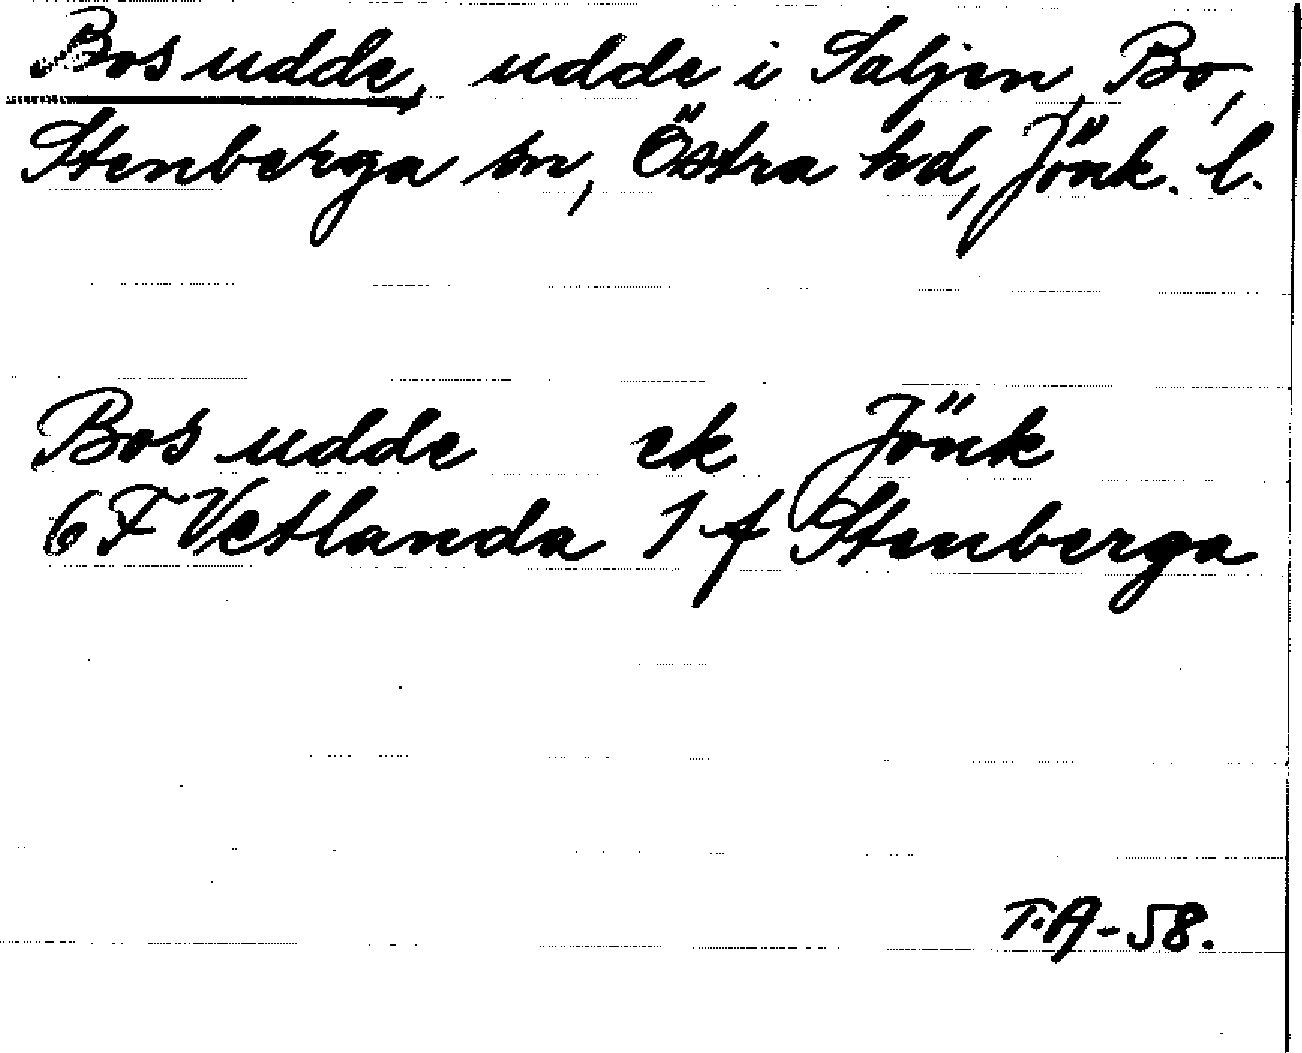 Bos udde, udde i Saljen, Bo,
Stenberga sn, Östra hd, Jönk. l.
Bos udde ek Jönk
6F Vetlanda 1 f Stenberga
T.A-58.